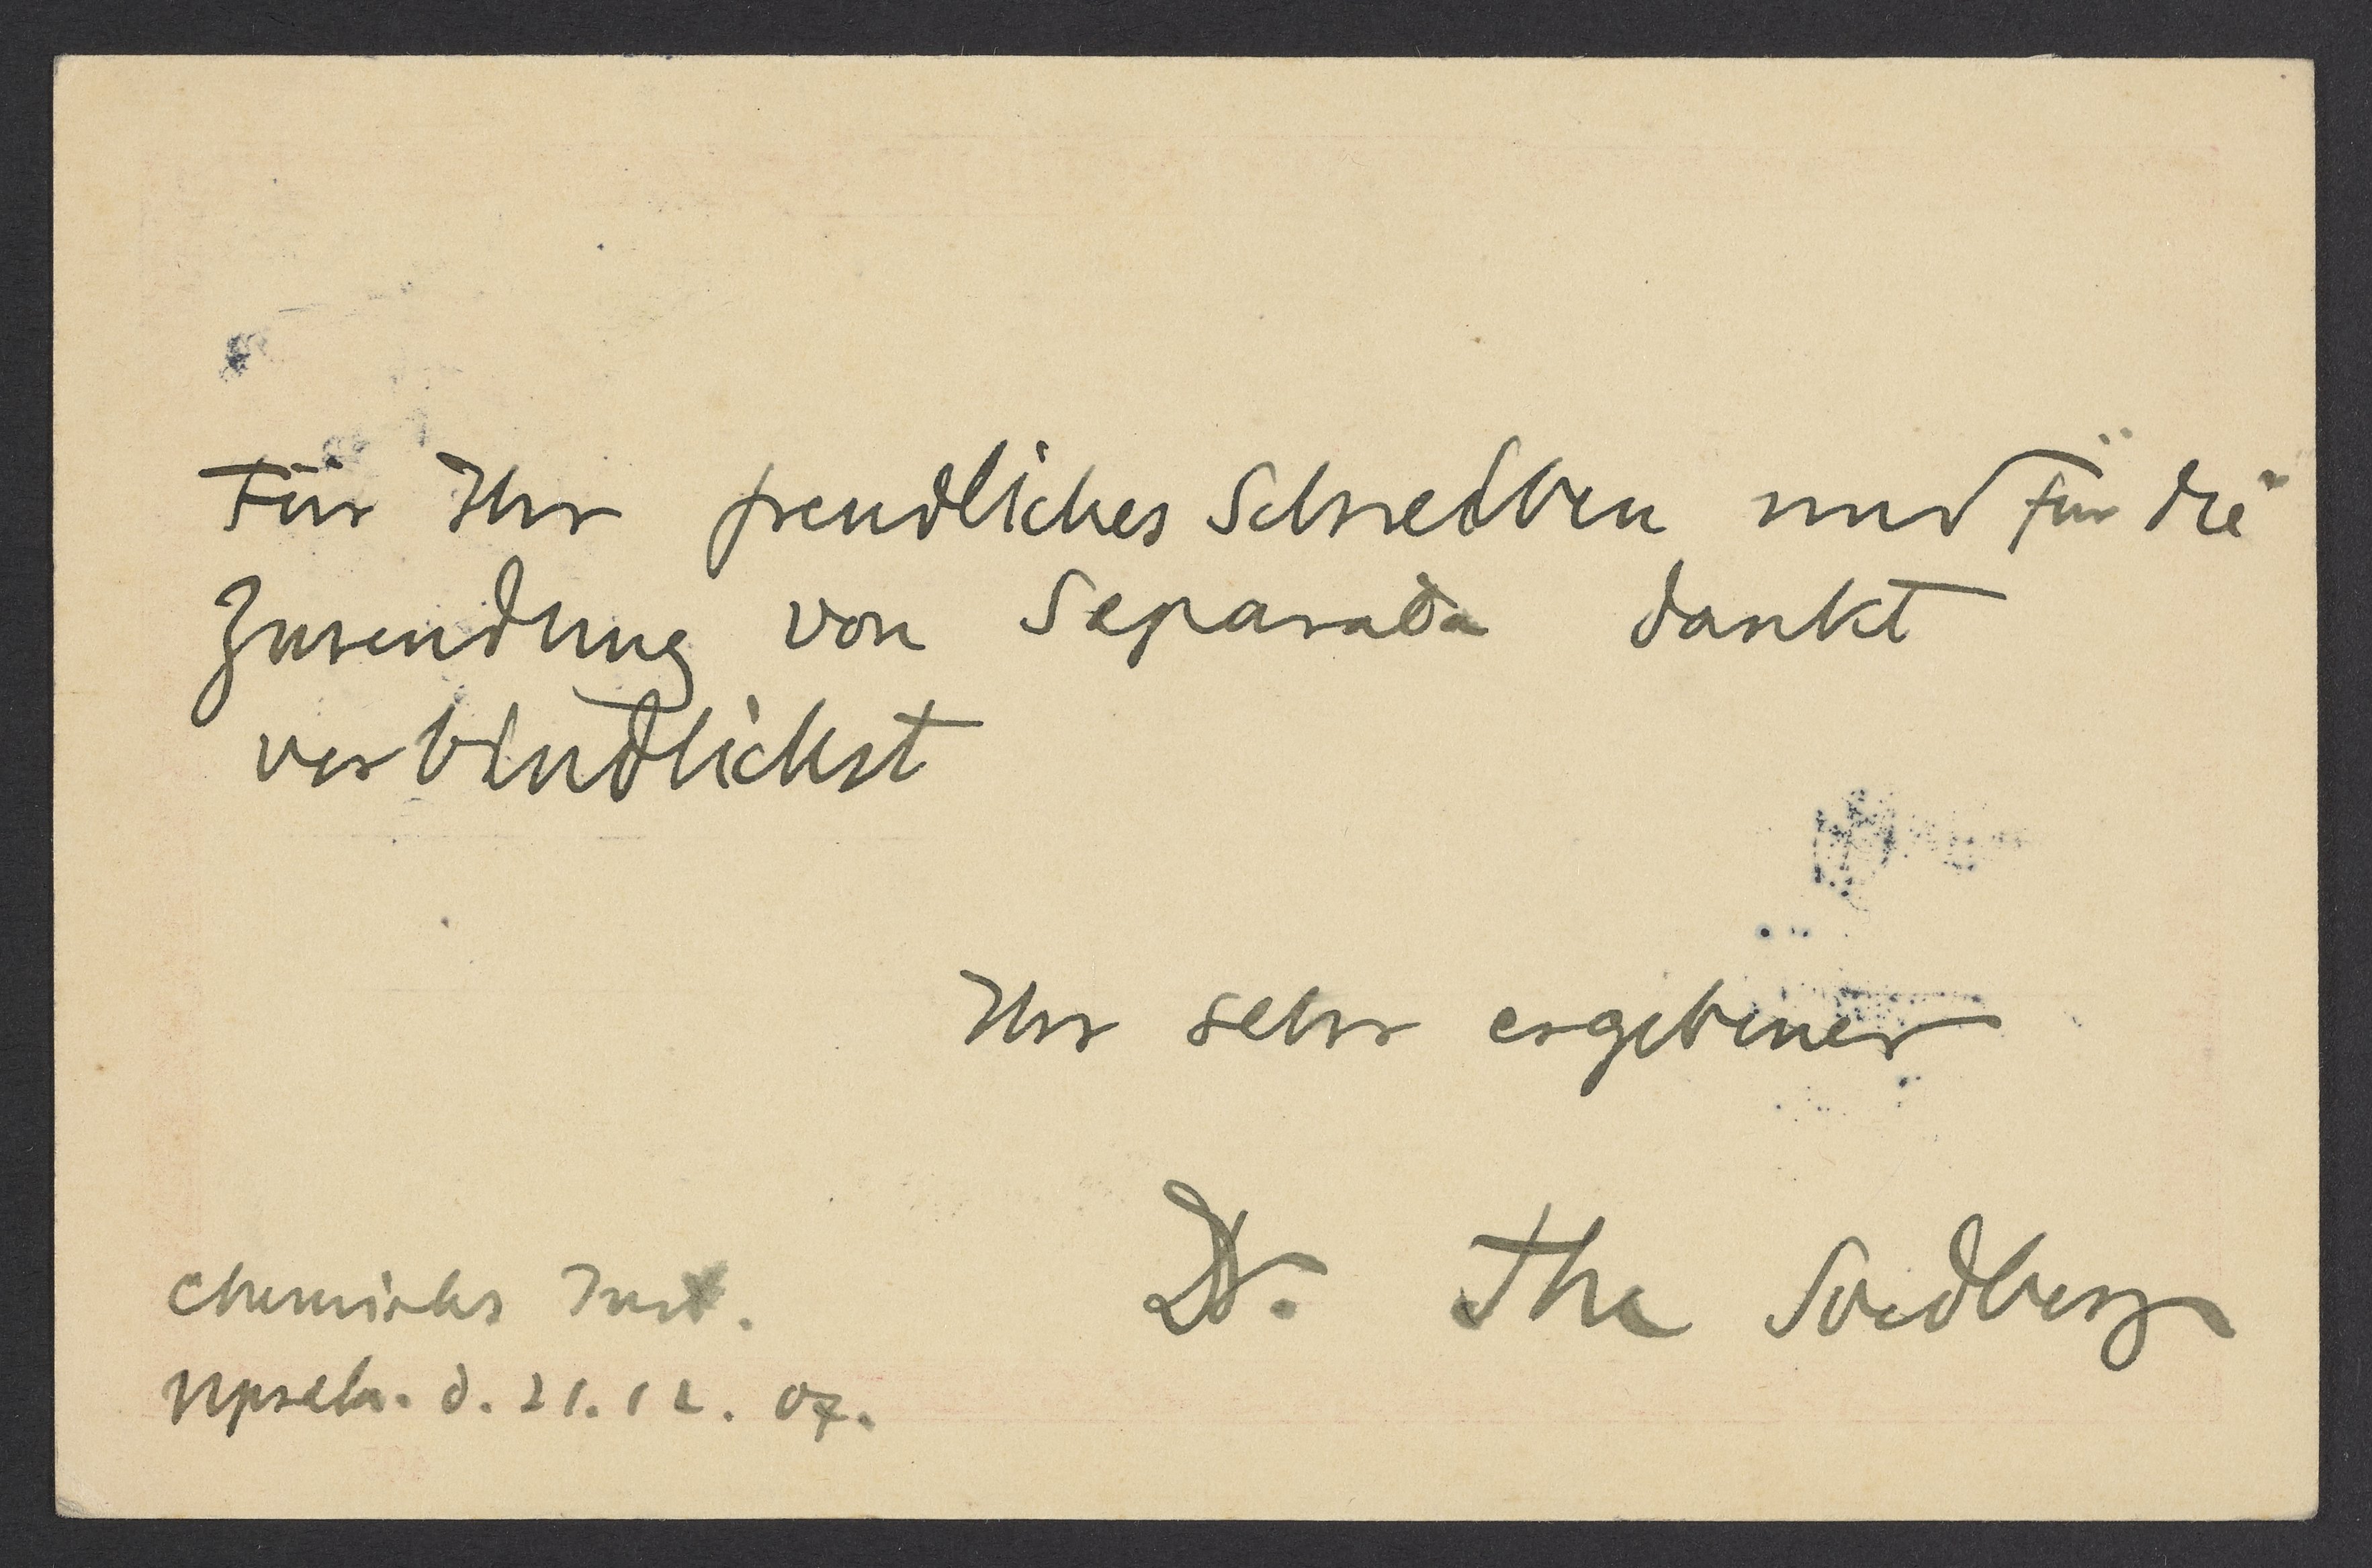 Für Ihr freundliches Schreiben und für die
Zusendung von Separata dankt
verbindlichst
Ihr sehr ergebener
Dr. The Svedberg
Chemisches Inst.
Upsala. d. 21.12.07.